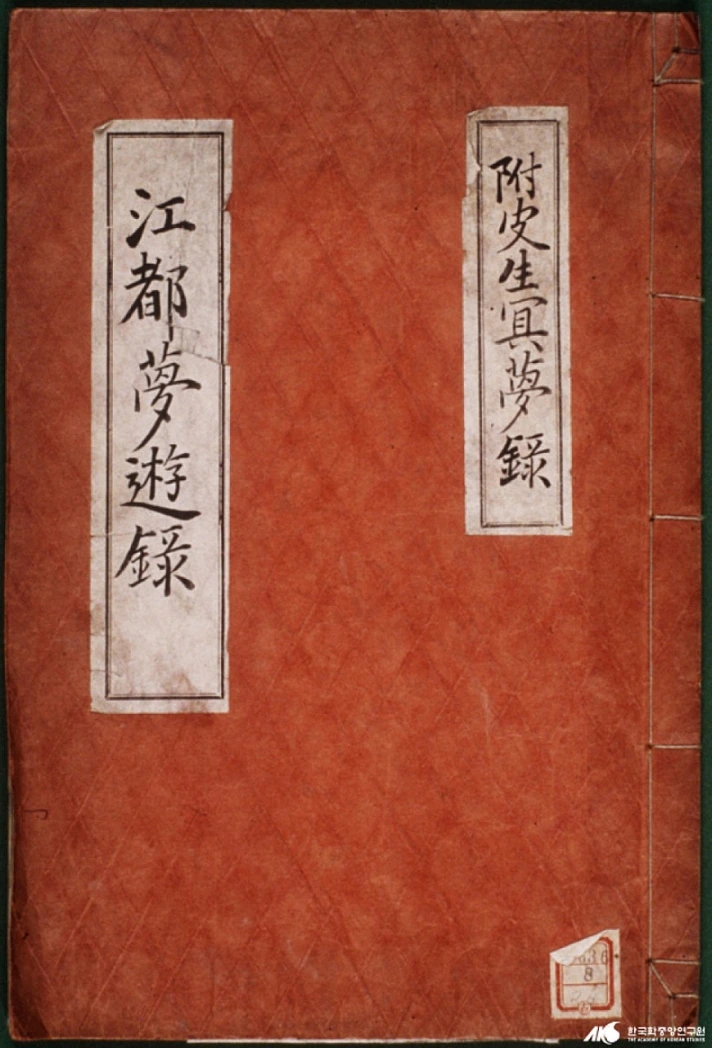 附皮生冥夢錄
江都夢遊錄
8
한국학중앙연구원
THE ACADEMY OF KOREAN STUDIES